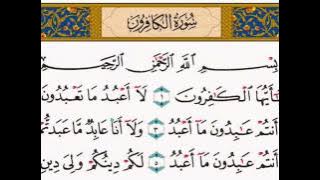 سُورَةُ الْكَافِرُونَ
بِسْمِ اللَّهِ الرَّحْمَٰنِ الرَّحِيمِ
يَٰٓأَيُّهَا ٱلْكَٰفِرُونَ ١ لَآ أَعْبُدُ مَا تَعْبُدُونَ
أَنتُمْ عَٰبِدُونَ مَآ أَعْبُدُ ٣ وَلَآ أَنَا۠ عَابِدٌ مَّا عَبَدتُّمْ
أَنتُمْ عَٰبِدُونَ مَآ أَعْبُدُ ٥ لَكُمْ دِينُكُمْ وَلِيَ دِينِ